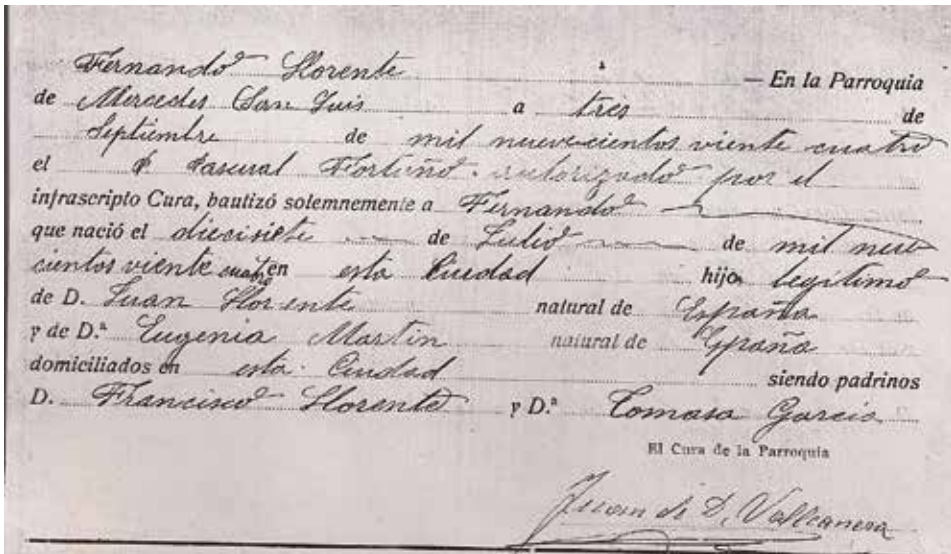 Fernando Llorente — En la Parroquia
de Mercedes San Luis a tres de
Septiembre de mil nuevecientos viente cuatro
el P. Pascual Fortuño autorizado por el
infrascripto Cura, bautizó solemnemente a Fernando
que nació el diecisiete de Julio de mil nue
cientos viente cuatro en esta Ciudad hijo legítimo
de D. Juan Llorente natural de España
y de D.ª Eugenia Martin natural de España
domiciliados en esta Ciudad siendo padrinos
D. Francisco Llorente y D.ª Tomasa Garcia
El Cura de la Parroquia
Juan de D. Vallcanera